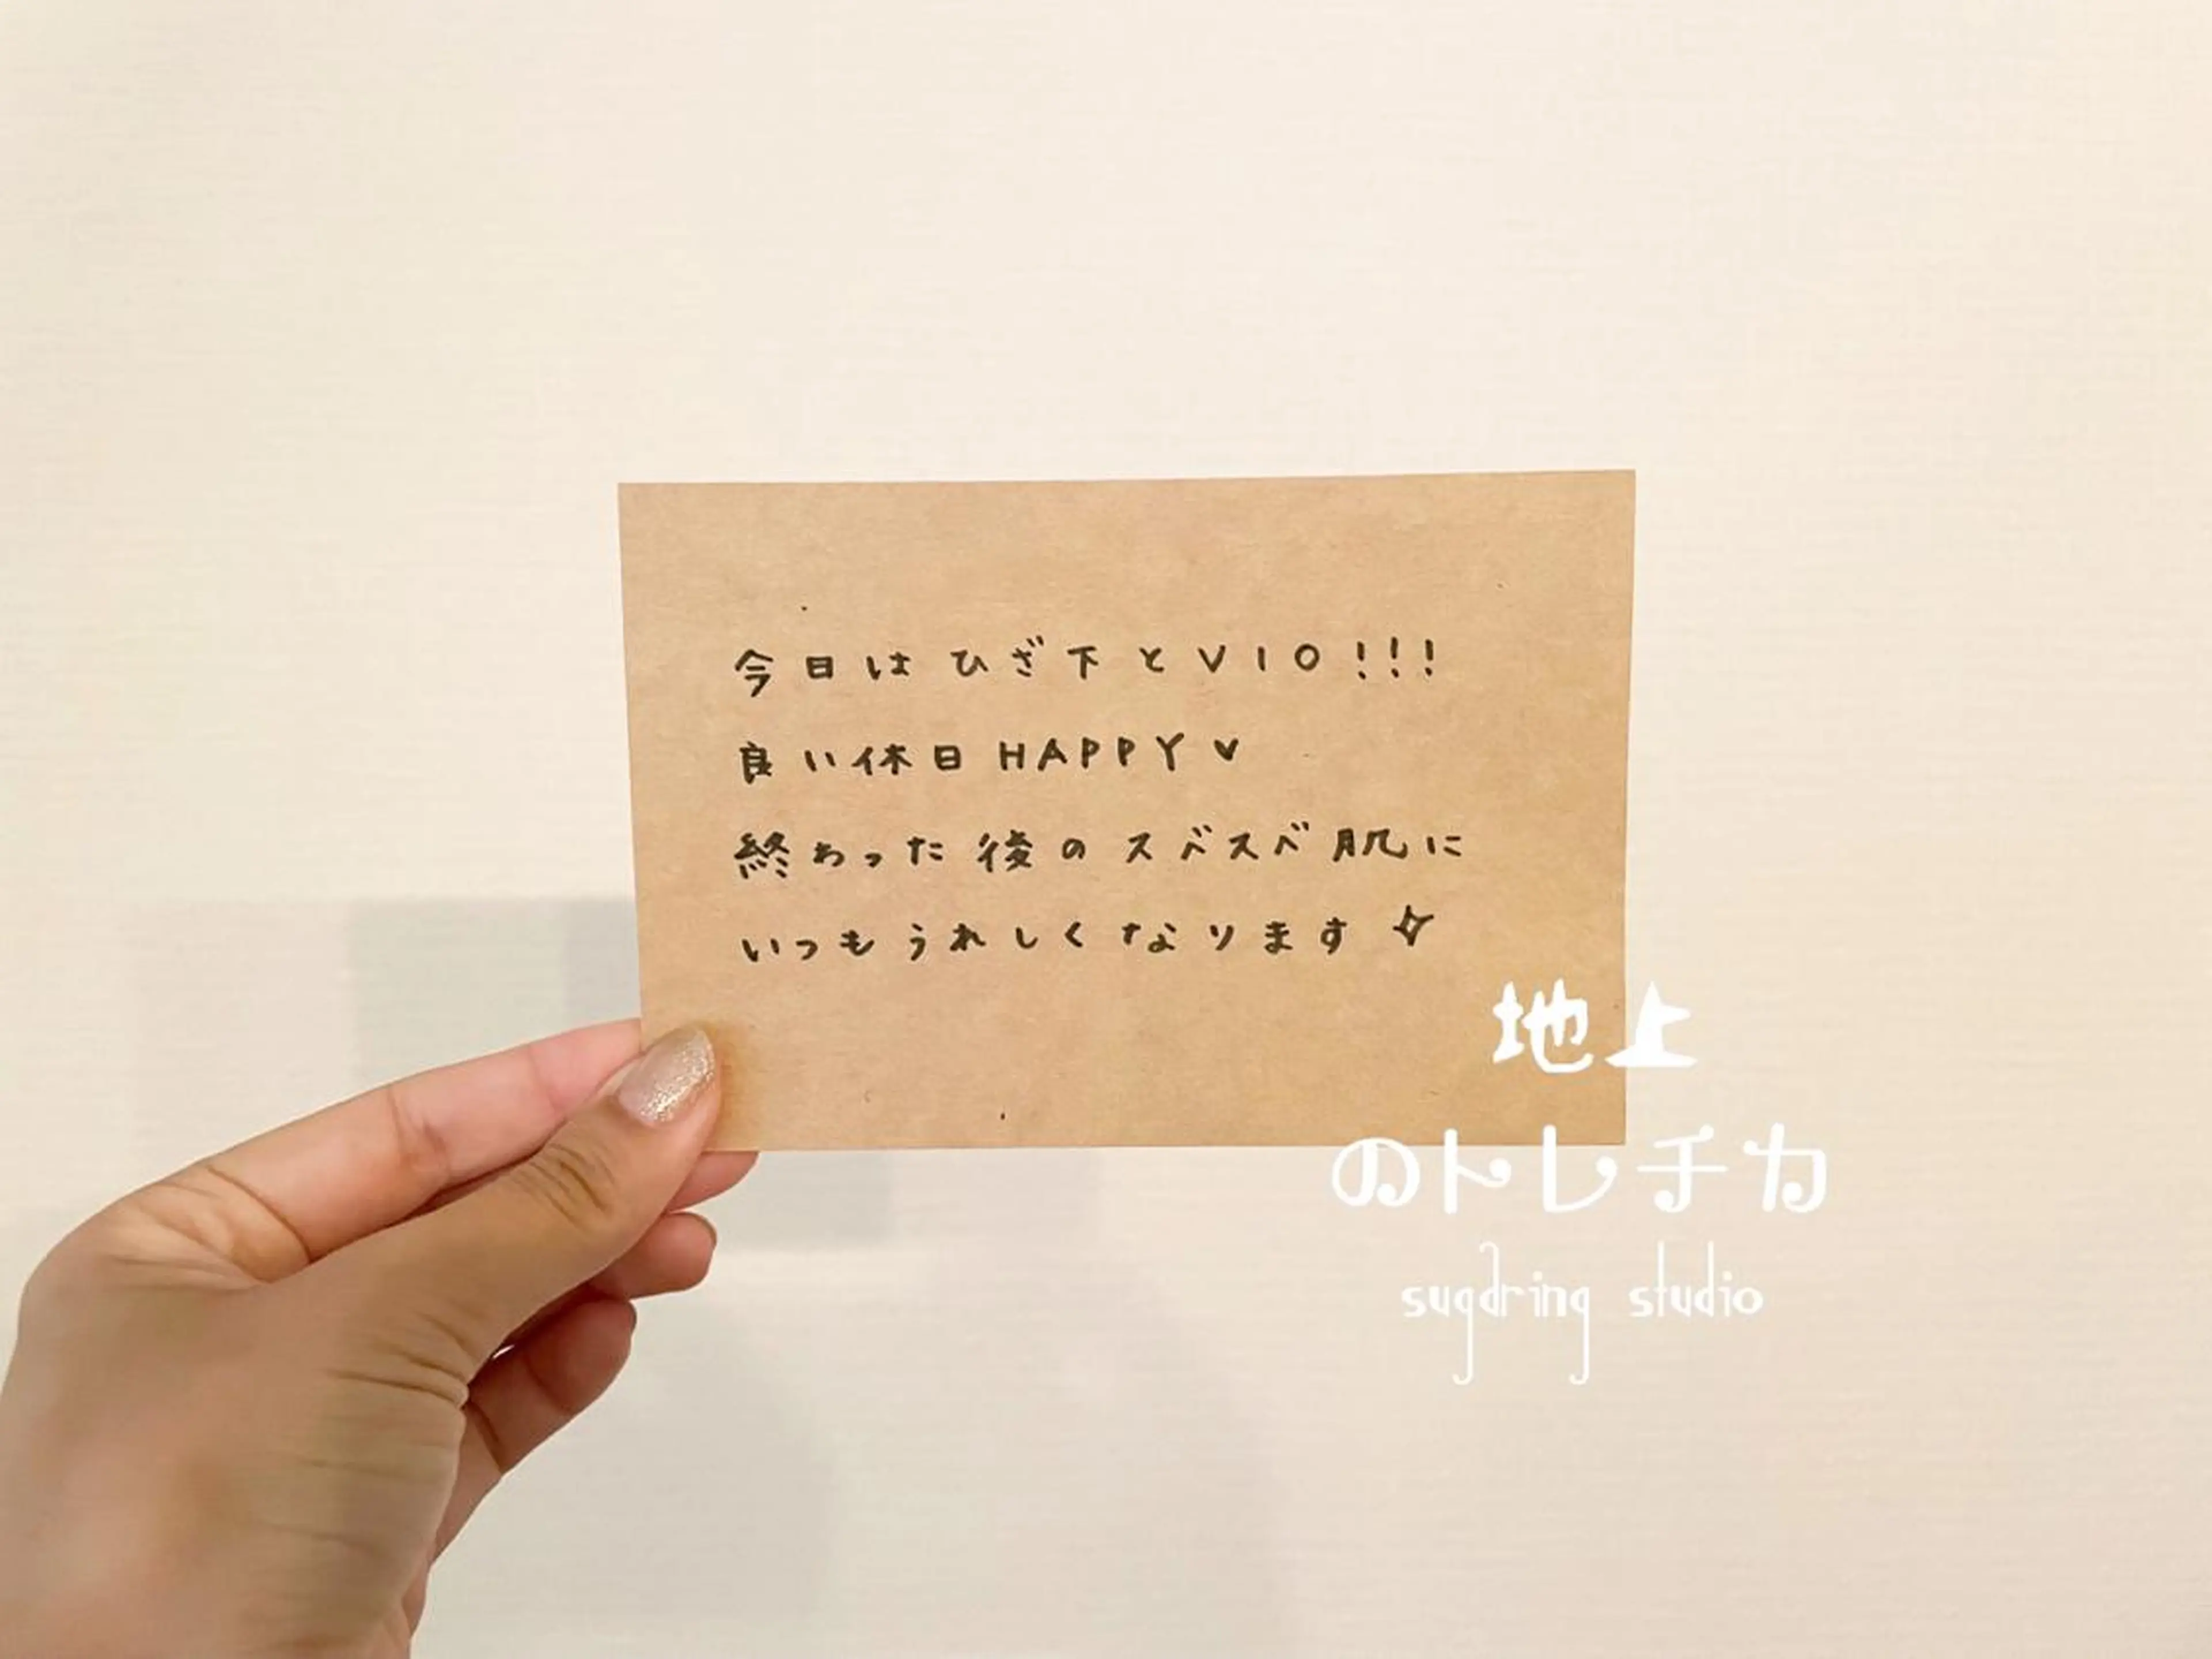 今日はひざ下とVIO!!!
良い休日HAPPY♥
終わった後のスベスベ肌に
いつもうれしくなります✧
地上
のトレチカ
sugdring studio